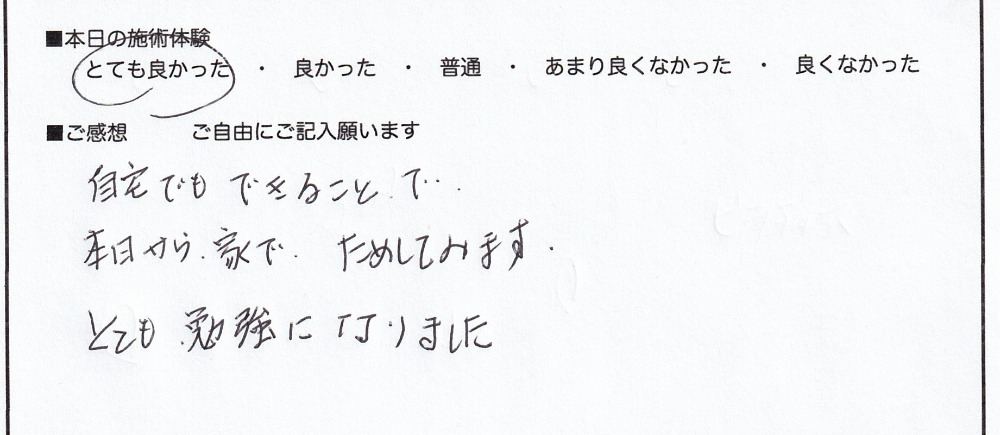 ■本日の施術体験
とても良かった ・ 良かった ・ 普通 ・ あまり良くなかった ・ 良くなかった
■ご感想 ご自由にご記入願います
自宅でもできること、で‥
本日から、家で、ためしてみます.
とても勉強になりました